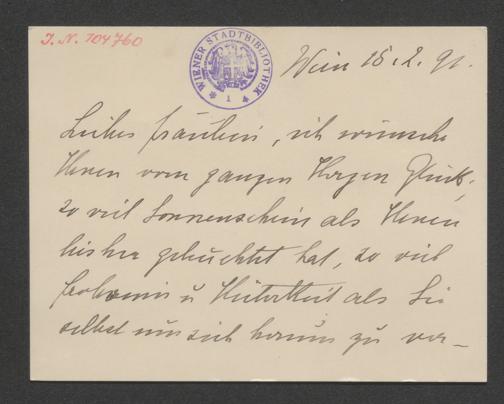 I. N. 104760
WIENER STADTBIBLIOTHEK
Wien 18. 2. 91.
Liebes Fräulein, ich wünsche
Ihnen vom ganzen Herzen Glück,
so viel Sonnenschein als Ihnen
bisher geleuchtet hat, so viel
Frohsinn u Heiterkeit als Sie
selbst um sich herum zu ver-